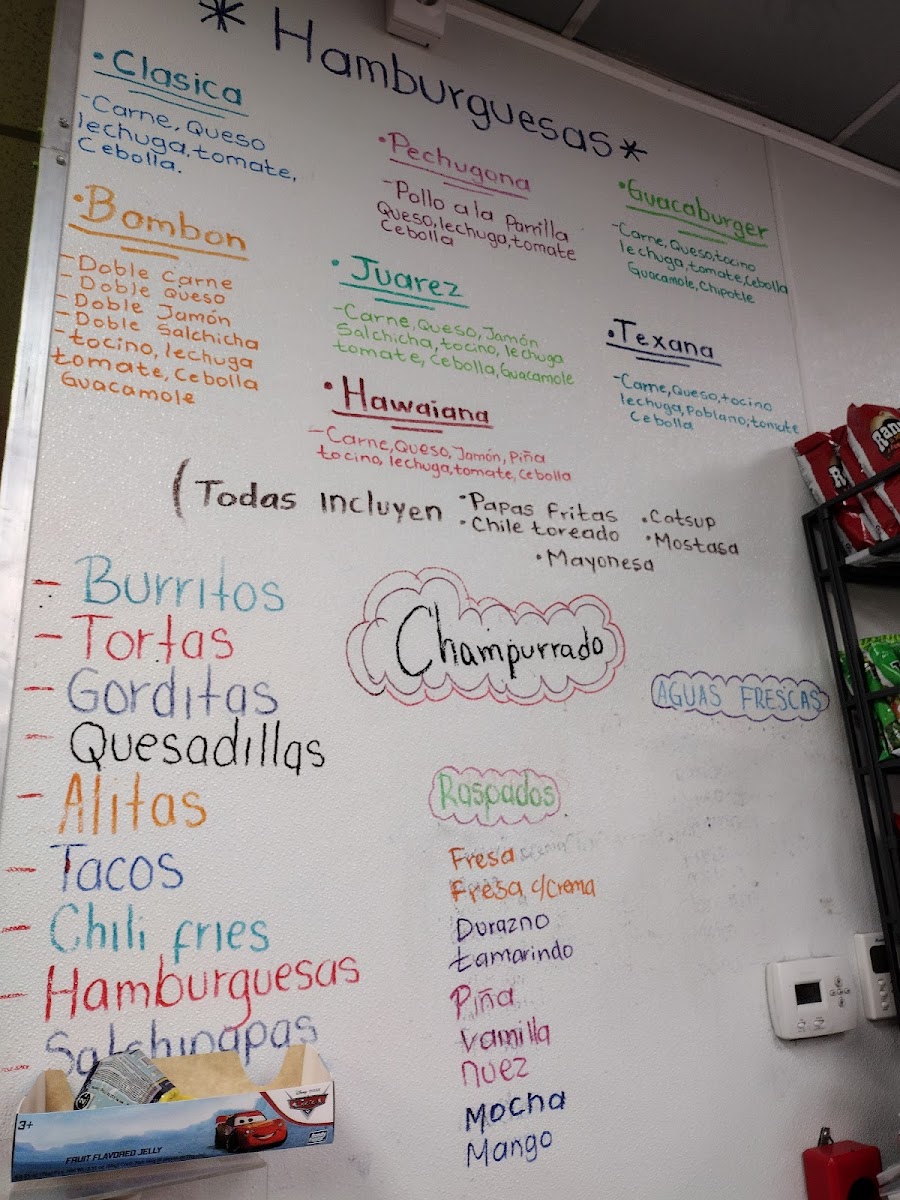 * Hamburguesas *
• Clasica
- Carne, Queso
lechuga, tomate,
Cebolla.
• Bombon
- Doble Carne
- Doble Queso
- Doble Jamón
- Doble Salchicha
- tocino, lechuga
tomate, Cebolla
Guacamole
• Pechugona
- Pollo a la Parrilla
Queso, lechuga, tomate
Cebolla
• Juarez
- Carne, Queso, Jamón
Salchicha, tocino, lechuga
tomate, Cebolla, Guacamole
• Hawaiana
- Carne, Queso, Jamón, Piña
tocino, lechuga, tomate, Cebolla
• Guacaburger
- Carne, Queso, tocino
lechuga, tomate, Cebolla
Guacamole, Chipotle
• Texana
- Carne, Queso, tocino
lechuga, Poblano, tomate
Cebolla
(Todas incluyen • Papas Fritas • Catsup
• Chile toreado • Mostasa
• Mayonesa
- Burritos
- Tortas
- Gorditas
- Quesadillas
- Alitas
- Tacos
- Chili fries
- Hamburguesas
- Salchipapas
Champurrado
AGUAS FRESCAS
Raspados
Fresa
Fresa c/crema
Durazno
tamarindo
Piña
Vainilla
nuez
Mocha
Mango
3+
FRUIT FLAVORED JELLY
Cars